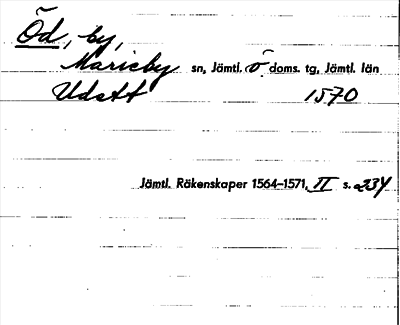 Öd, by,
Marieby sn, Jämtl. ö doms. tg, Jämtl. län
Udett 1570
Jämtl. Räkenskaper 1564–1571, II s. 234